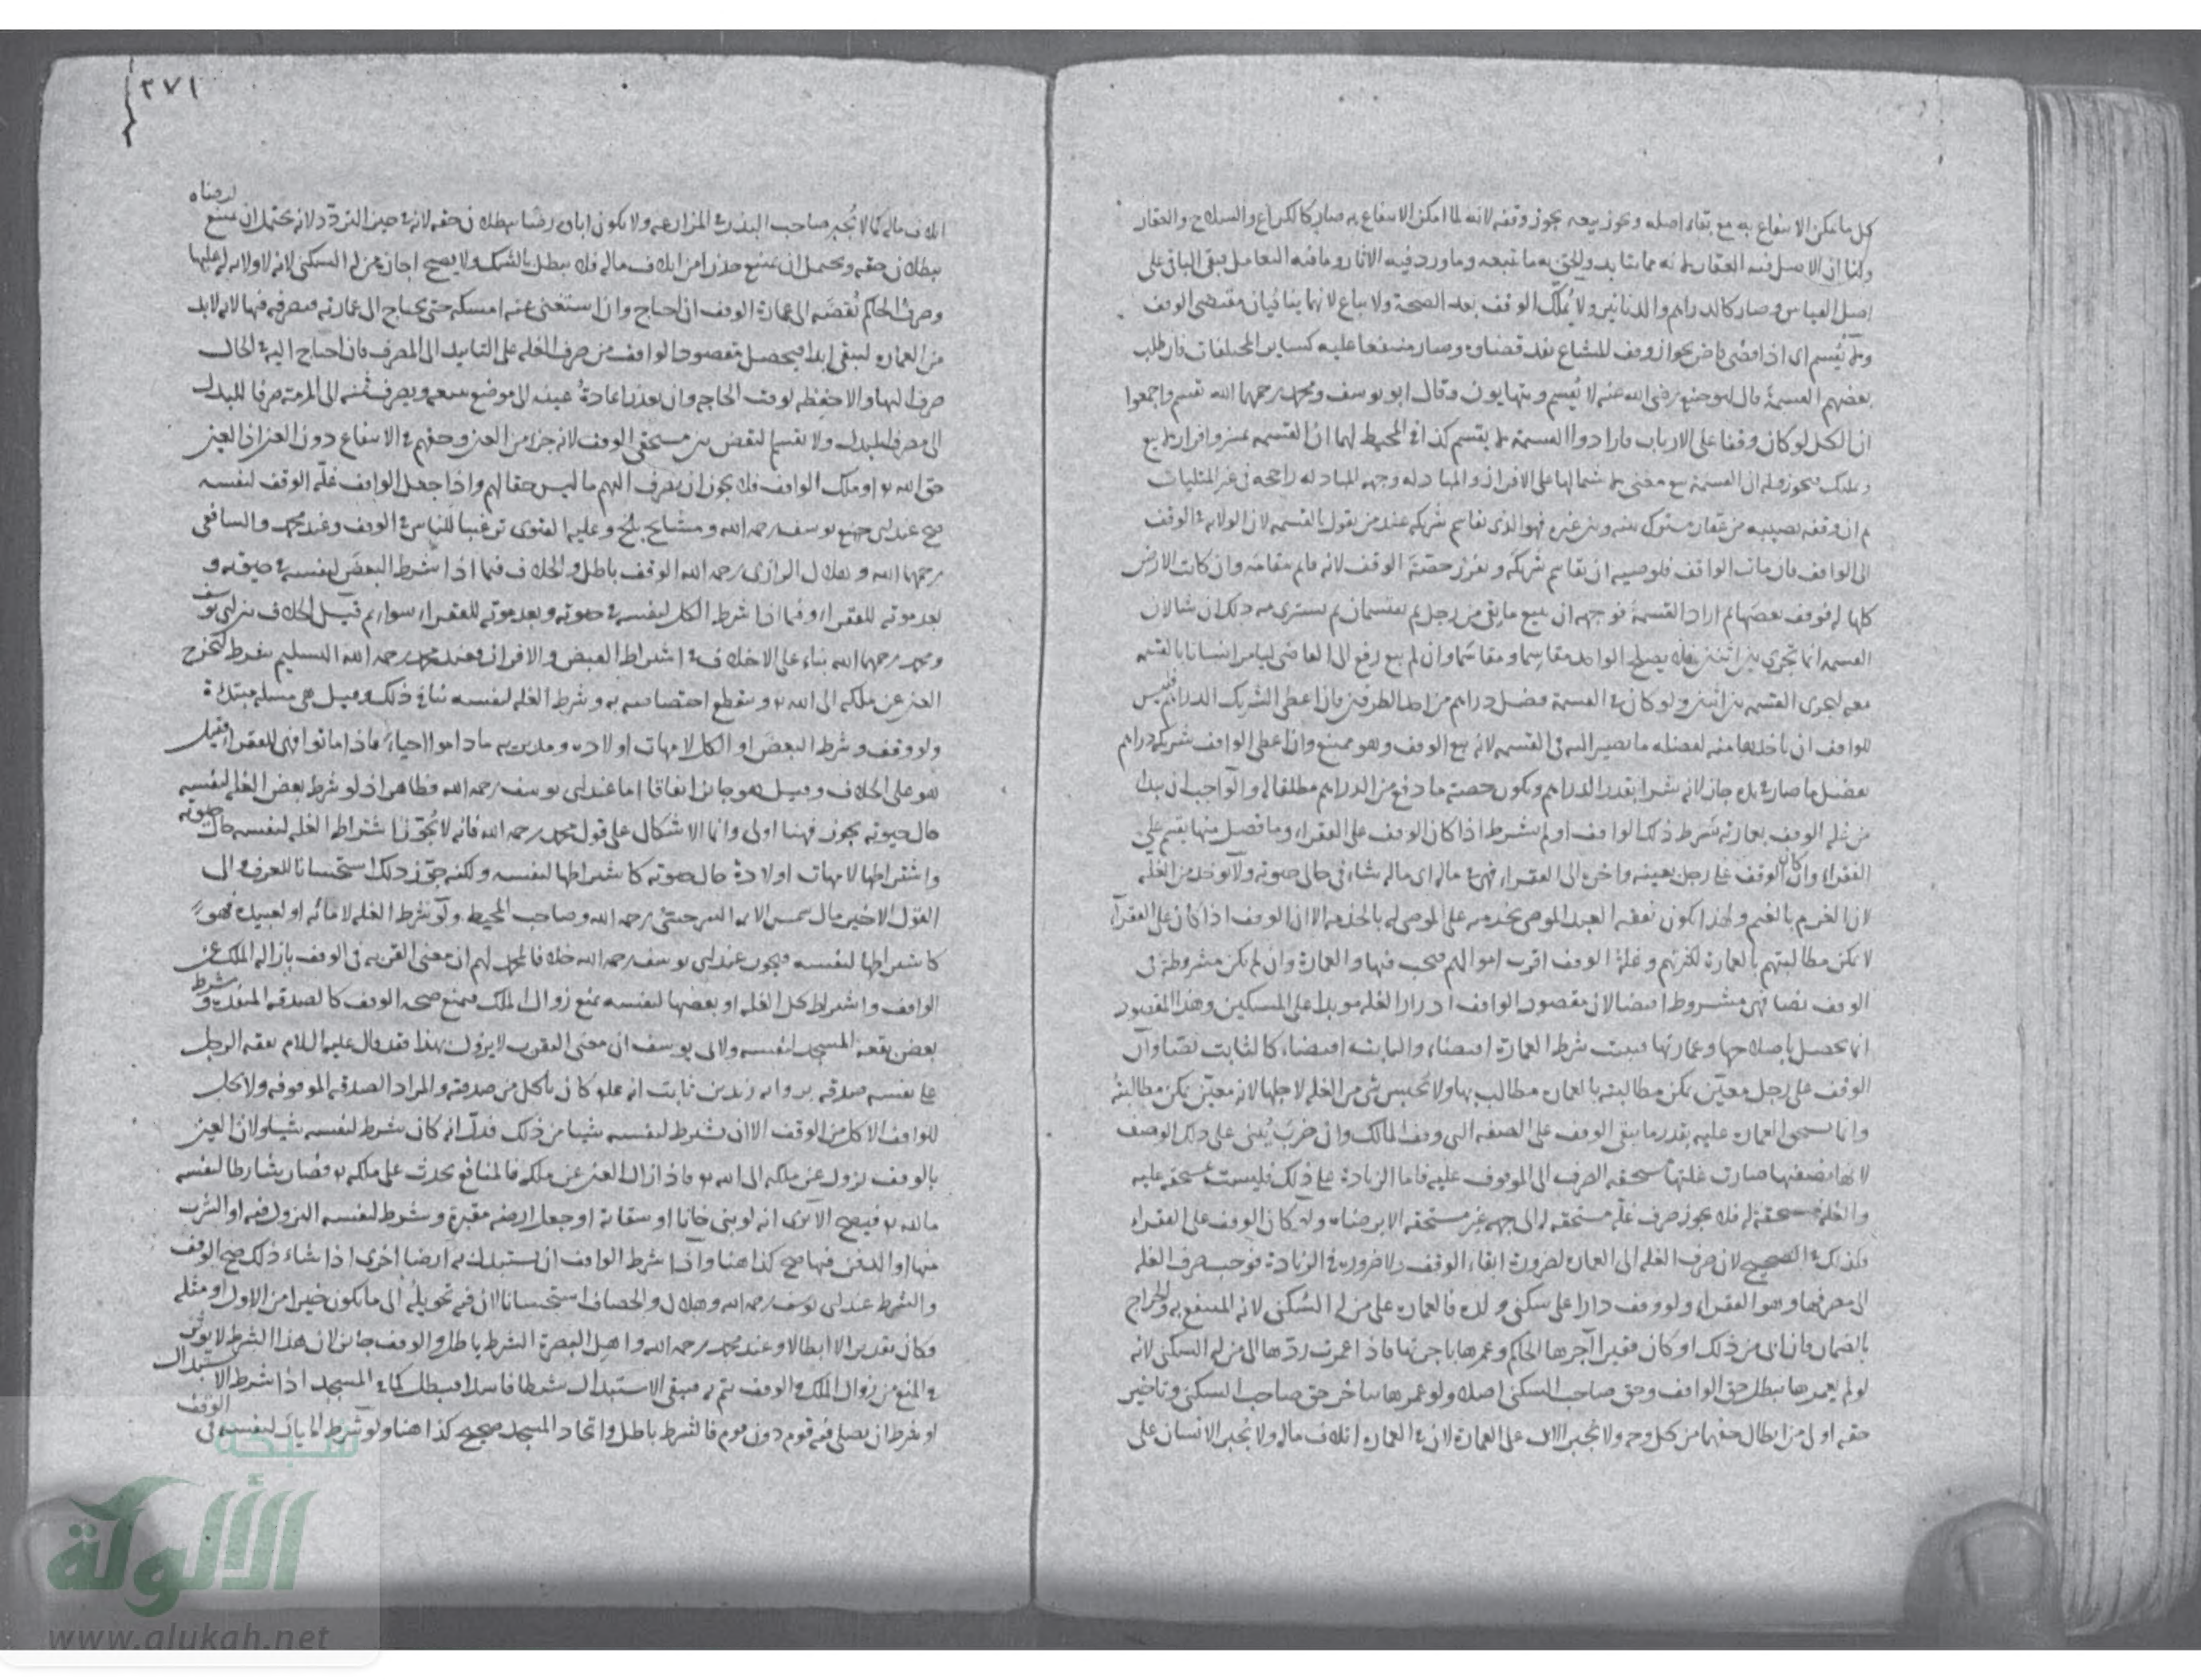 كل ما يمكن الانتفاع به مع بقاء اصله ويجوز بيعه يجوز وقفه لانه لما امكن الانتفاع به صار كالكراع والسلاح والعقار
ولنا ان الاصل فيه العقار لانه مما يتابد ويلحق به ما يتبعه وما ورد فيه الاثار وما فيه التعامل يبقى الباقي على
اصل القياس وصار كالدراهم والدنانير ولا يُملك الوقف بعد الصحة ولا يباع لانهما ينافيان مقتضى الوقف
ولا يُقسم اى اذا قضى قاض بجواز وقف المشاع نفذ قضاؤه وصار متفقا عليه كساير المختلفات فان طلب
بعضهم القسمة قال ابو حنيفة رضى الله عنه لا يُقسم ويتهايون وقال ابو يوسف ومحمد رحمهما الله تقسم واجمعوا
ان الكل لو كان وقفا على الارباب فارادوا القسمة لا يقسم كذا في المحيط لهما ان القسمة تميز وافراز لا بيع
وتمليك فيجوز وله ان القسمة بيع معنى لاشتمالها على الافراز والمبادله وجهة المبادله راجحه في غير المثليات
ثم ان وقف نصيبه من عقار مشترك بينه وبين غيره فهو الذى يقاسم شريكه عند من يقول بالقسمه لان الولاية في الوقف
الى الواقف فان مات الواقف فلوصيه ان يقاسم شريكه ويفرز حصّة الوقف لانه قايم مقامه وان كانت الارض
كلها له فوقف بعضها ثم اراد القسمة فوجهه ان يبيع ما بقى من رجل ثم يقتسمان ثم يشترى منه ذلك ان شا لان
القسمه انما تجرى بين اثنين فلا يصلح الواحد مقاسما ومقاسما وان لم يبع رفع الى القاضى ليامر انسانا بالقسمه
معه لتجرى القسمه بين اثنين ولو كان في القسمة فضل دراهم من احد الطرفين فان اعطى الشريك الدراهم فليس
للواقف ان ياخذها منه لفضله ما يصير اليه في القسمه لانه بيع الوقف وهو ممتنع وان اعطى الواقف شريكه دراهم
بفضل ما صار في يده جاز لانه شرا بقدر الدراهم ويكون حصته ما دفع من الدراهم مطلقا له والواجب ان يبدا
من غله الوقف بعمارته شرط ذلك الواقف او لم يشرط اذا كان الوقف على الفقراء وما فضل منها يقسم على
الفقراء وان كان الوقف على رجل بعينه واخره الى الفقراء فهى في ماله اى ماله شاء في حال حيوته ولا يؤخذ من الغله
لان الغرم بالغنم ولهذا يكون نفقه العبد الموصى بخدمته على الموصى له بالخدمه الا ان الوقف اذا كان على الفقراء
لا يمكن مطالبتهم بالعمارة لكثرتهم وغلة الوقف اقرب اموالهم فيجب فيها والعمارة وان لم يكن مشروطة في
الوقف نصا فهى مشروط اقتضا لان مقصود الواقف ادرار الغله موبدا على المسكين وهذا المقصود
انما يحصل باصلاحها وعمارتها فيثبت شرط العمارة اقتضاء والثابت اقتضاء كالثابت نصّا وان
الوقف على رجل معيّن يمكن مطالبته بالعماره مطالب بها ولا يحبس شى من الغله لاجلها لانه معيّن يمكن مطالبتهُ
وانما يستحق العماره عليه بقدر ما يبقى الوقف على الصفه التى وقف المالك وان خرب يُبنى على ذلك الوصف
لانها بصفتها صارت غلتها مستحقه الصرف الى الموقوف عليه فاما الزيادة على ذلك فليست مستحقه عليه
والغلة مستحقة له فلا يجوز صرف غلّه مستحقه له الى جهه غير مستحقه الا برضاه ولو كان الوقف على الفقراء
فكذلك في الصحيح لان صرف الغله الى العماره لضرورة ابقاء الوقف ولا ضرورة في الزيادة فوجب صرف الغله
الى مصرفها وهو الفقراء ولو وقف دارا على سكنى ولده فالعماره على من له السُكنى لانه المنتفع به والخراج
بالضمان فان ابى من ذلك او كان فقيرا آجرها الحاكم وعمرها باجرتها فاذا عمرت ردّها الى من له السكنى لانه
لو لم يعمرها يبطل حق الواقف وحق صاحب السكنى اصلا ولو عمرها يتاخر حق صاحب السكنى وتاخير
حقه اولى من ابطال حقهما من كل وجه ولا يُجبر الابى على العمارة لان في العماره اتلاف ماله ولا يُجبر الانسان على
٢٧١
اتلاف ماله كما لا يُجبر صاحب البذر في المزارعه ولا يكون اباؤه رضًا ببطلان حقه لانه في حيز التردّد لانه يحتمل ان يمتنع لرضاه
ببطلان حقه ويحتمل ان يمتنع حذرا من اتلاف ماله فلا يبطل بالشك ولا يصح اجازه من له السكنى لانه لا ولايه له عليها
وصرف الحاكم نُقضَه الى عمارة الوقف ان احتاج وان استغنى عنه امسكه حتى يحتاج الى عمارته فيصرفه فيها لانه لا بد
من العماره ليبقى ابدا فيحصل مقصود الواقف من صرف الغله على التابيد الى المصرف فان احتاج اليه في الحال
صرف اليها والا حفِظه لوقت الحاجه وان تعذر اعادةُ عينه الى موضع بيعه ويصرف ثمنه الى المرمة صرفا للبدل
الى مصرف المبدل ولا يقسم النقض بين مستحقى الوقف لانه جزء من العين وحقهم في الانتفاع دون العين اذ العين
حق الله تع او ملك الواقف فلا يجوز ان يصرف اليهم ما ليس حقا لهم واذا جعل الواقف غلّه الوقف لنفسه
صح عند ابى يوسف رحمه الله ومشايخ بلخ وعليه الفتوى ترغيبا للناس في الوقف وعند محمد والشافعى
رحمهما الله وهلال الرازى رحمه الله الوقف باطل والخلاف فيما اذا شرط البعض لنفسه في حيوته و
بعد موته للفقراء وفيما اذا شرط الكل لنفسه في حيوته وبعد موته للفقراء سواء ثم قيل الخلاف بين ابى يوسف
ومحمد رحمهما الله بناء على الاختلاف في اشتراط القبض والافراز فعند محمد رحمه الله التسليم شرط ليخرج
العين عن ملكه الى الله تع وينقطع اختصاصه به وشرط الغله لنفسه ينافي ذلك وقيل هى مسله مبتدءة
ولو وقف وشرط البعض او الكل لامهات اولاده ومدبريه ما داموا احياء فاذا ماتوا فهى للفقراء فقيل
هو على الخلاف وقيل هو جائز اتفاقا اما عند ابى يوسف رحمه الله فظاهر اذ لو شرط بعض الغله لنفسه
حال حيوته يجوز فهنا اولى وانما الاشكال على قول محمد رحمه الله فانه لا يُجوّز اشتراط الغله لنفسه حال حيوته
واشتراطها لامهات اولاده حال حيوته كاشتراطها لنفسه ولكنه جوّز ذلك استحسانا للعرف والى
القول الاخير مال شمس الايمه السرخسى رحمه الله وصاحب المحيط ولو شرط الغله لامائه او لعبيده فهو
كاشتراطها لنفسه فيجوز عند ابى يوسف رحمه الله خلافا لمحمد لهم ان معنى القربه في الوقف بازاله الملك عن
الواقف واشتراط كل الغله او بعضها لنفسه يمنع زوال الملك فيمنع صحه الوقف كالصدقه المنفذة وشرط
بعض بقعه المسجد لنفسه ولابى يوسف ان معنى التقرب لا يزول بهذا فقد قال عليه السلام نفقه الرجل
على نفسه صدقه وروايه زيد بن ثابت انه علم كان ياكل من صدقته والمراد الصدقه الموقوفه ولا يحل
للواقف الاكل من الوقف الا ان شرط لنفسه شيا من ذلك فدلّ انه كان شرط لنفسه شيا ولان العين
بالوقف يزول عن ملكه الى الله تع فاذا زال العين عن ملكه فالمنافع تحدث على ملكه تع فصار شارطا لنفسه
ما لله تع فيصح الا ترى انه لو بنى خانا او سقاية او جعل ارضه مقبرة وشرط لنفسه النزول فيه او الشرب
منها او الدفن فيها صح كذا هنا واذا شرط الواقف ان يستبدل به ارضا اخرى اذا شاء ذلك صح الوقف
والشرط عند ابى يوسف رحمه الله وهلال والخصاف استحسانا لان فيه تحويلُه الى ما يكون خيرا من الاول او مثله
فكان تقديرا لا ابطالا وعند محمد رحمه الله واهل البصرة الشرط باطل والوقف جائز لان هذا الشرط لا يؤثر
في المنع من زوال الملك والوقف يتم به فيبقى الاستبدال شرطا فاسدا فيبطل كما في المسجد اذا شرط الاستبدال
او شرط ان يصلى فيه قوم دون قوم فالشرط باطل واتخاد المسجد صحيح كذا هنا ولو شرط الخيار لنفسه في الوقف
شبكة
الألوكة
www.alukah.net